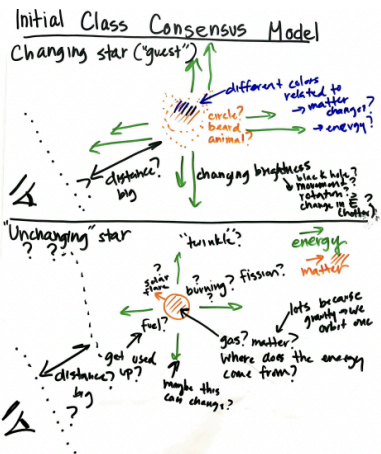 Initial Class Consensus Model
Changing star ("guest")
different colors
related to
→ matter
changes?
→ energy?
circle?
beard
animal?
distance?
big
changing brightness
black hole?
movement?
rotation?
change in E?
(hotter)
"Unchanging" star
? ? ?
"twinkle"?
energy
matter
?
solar
flare
?
burning?
?
fission?
fuel?
lots because
gravity → we
orbit one
get used
up?
gas? matter?
Where does the energy
come from?
distance?
big
?
maybe this
can change?